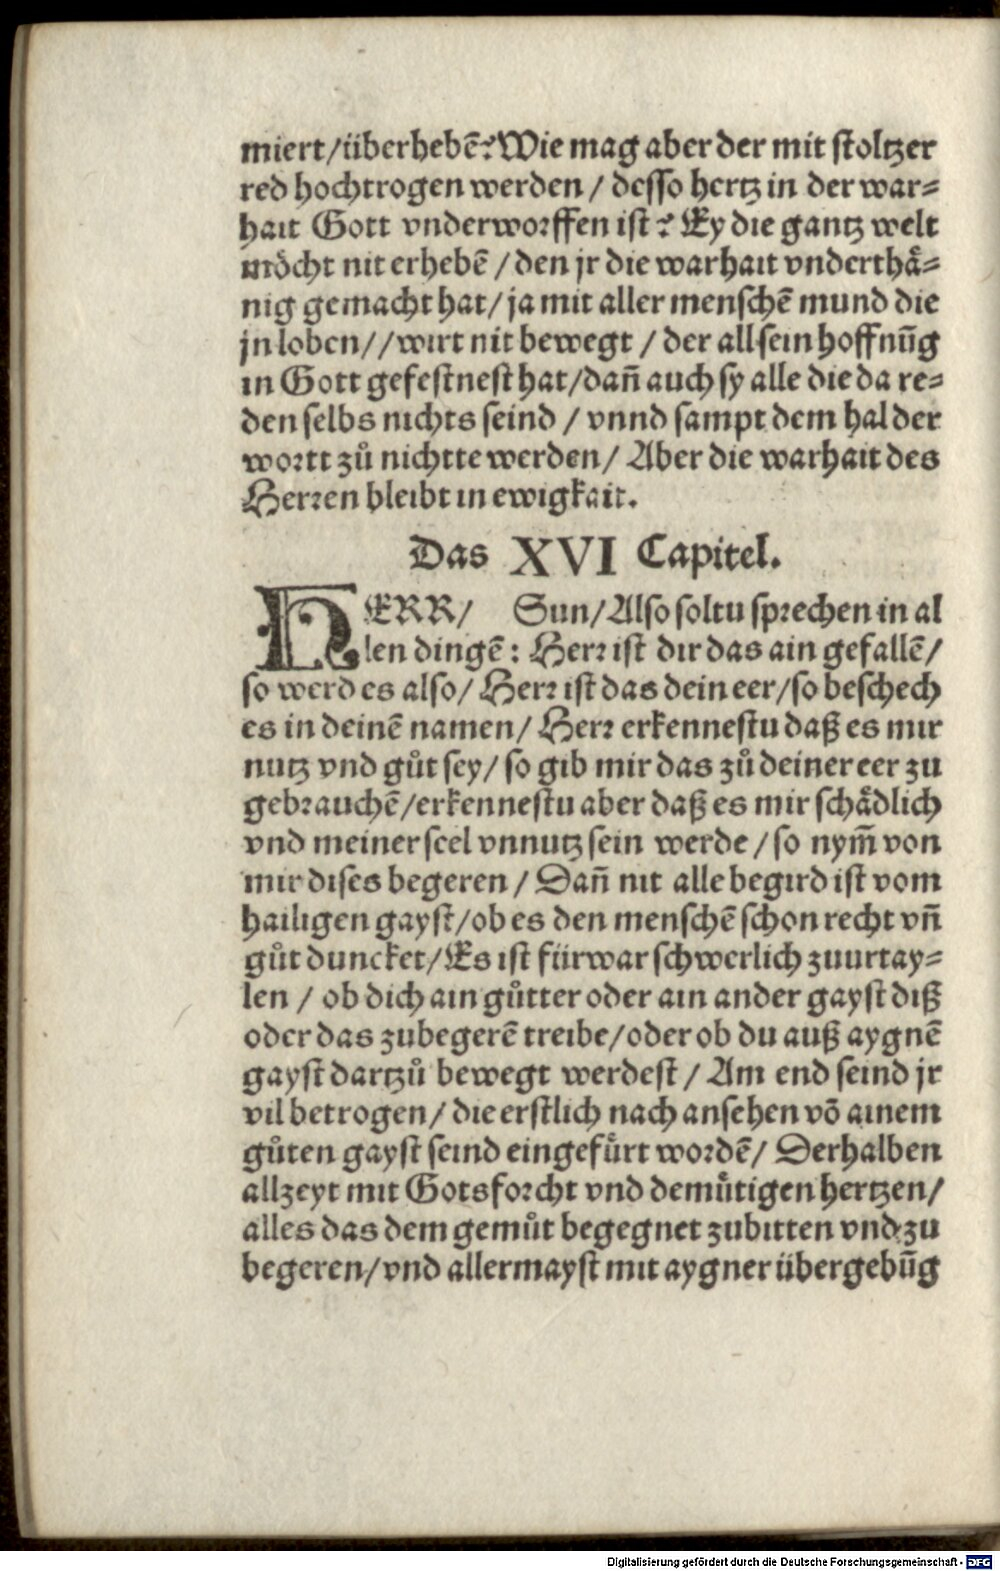 miert/überhebē? Wie mag aber der mit stoltzer
red hochtrogen werden / desso hertz in der war=
hait Gott vnderworffen ist? Ey die gantz welt
möcht nit erhebē / den jr die warhait vnderthaͤ=
nig gemacht hat/ ja mit aller menschē mund die
jn loben// wirt nit bewegt / der all sein hoffnūg
in Gott gefestnest hat/ dañ auch sy alle die da re=
den selbs nichts seind / vnnd sampt dem hal der
wortt zů nichtte werden/ Aber die warhait des
Herren bleibt in ewigkait.
Das XVI Capitel.
HERR/ Sun/ Also soltu sprechen in al
len dingē: Herr ist dir das ain gefallē/
so werd es also/ Herr ist das dein eer/ so beschech
es in deinē namen/ Herr erkennestu daß es mir
nutz vnd gůt sey/ so gib mir das zů deiner eer zu
gebrauchē/ erkennestu aber daß es mir schaͤdlich
vnd meiner seel vnnutz sein werde / so nym̄ von
mir dises begeren / Dañ nit alle begird ist vom
hailigen gayst/ ob es den menschē schon recht vñ
gůt duncket/ Es ist fürwar schwerlich zuurtay=
len / ob dich ain gůtter oder ain ander gayst diß
oder das zubegerē treibe/ oder ob du auß aygnē
gayst dartzů bewegt werdest / Am end seind jr
vil betrogen/ die erstlich nach ansehen vō ainem
gůten gayst seind eingefuͤrt wordē/ Derhalben
allzeyt mit Gotsforcht vnd demuͤtigen hertzen/
alles das dem gemůt begegnet zubitten vnd zu
begeren/ vnd allermayst mit aygner übergebūg
Digitalisierung gefördert durch die Deutsche Forschungsgemeinschaft - DFG